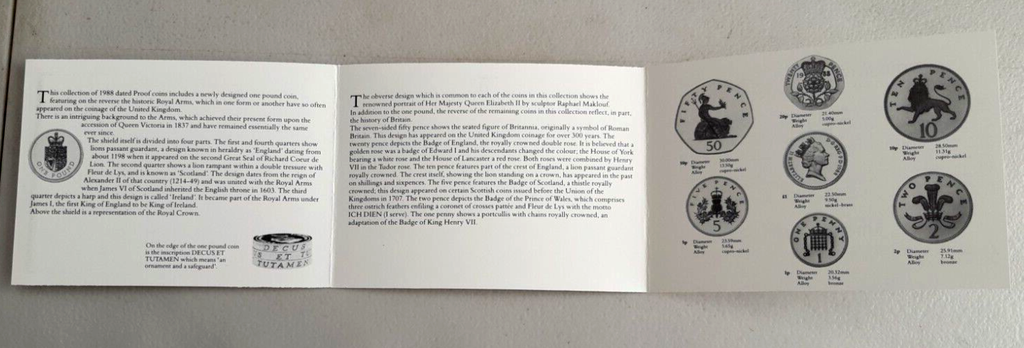 This collection of 1988 dated Proof coins includes a newly designed one pound coin,
featuring on the reverse the historic Royal Arms, which in one form or another have so often
appeared on the coinage of the United Kingdom.
There is an intriguing background to the Arms, which achieved their present form upon the
accession of Queen Victoria in 1837 and have remained essentially the same
ever since.
The shield itself is divided into four parts. The first and fourth quarters show
lions passant guardant, a design known in heraldry as 'England' dating from
about 1198 when it appeared on the second Great Seal of Richard Coeur de
Lion. The second quarter shows a lion rampant within a double tressure with
Fleur de Lys, and is known as 'Scotland'. The design dates from the reign of
Alexander II of that country (1214-49) and was united with the Royal Arms
when James VI of Scotland inherited the English throne in 1603. The third
quarter depicts a harp and this design is called 'Ireland'. It became part of the Royal Arms under
James I, the first King of England to be King of Ireland.
Above the shield is a representation of the Royal Crown.
ONE POUND
On the edge of the one pound coin
is the inscription DECUS ET
TUTAMEN which means 'an
ornament and a safeguard'.
DECUS
ET
TUTAMEN
The obverse design which is common to each of the coins in this collection shows the
renowned portrait of Her Majesty Queen Elizabeth II by sculptor Raphael Maklouf.
In addition to the one pound, the reverse of the remaining coins in this collection reflect, in part,
the history of Britain.
The seven-sided fifty pence shows the seated figure of Britannia, originally a symbol of Roman
Britain. This design has appeared on the United Kingdom coinage for over 300 years. The
twenty pence depicts the Badge of England, the royally crowned double rose. It is believed that a
golden rose was a badge of Edward I and his descendants changed the colour; the House of York
bearing a white rose and the House of Lancaster a red rose. Both roses were combined by Henry
VII in the Tudor rose. The ten pence features part of the crest of England, a lion passant guardant
royally crowned. The crest itself, showing the lion standing on a crown, has appeared in the past
on shillings and sixpences. The five pence features the Badge of Scotland, a thistle royally
crowned; this design appeared on certain Scottish coins issued before the Union of the
Kingdoms in 1707. The two pence depicts the Badge of the Prince of Wales, which comprises
three ostrich feathers enfiling a coronet of crosses pattée and Fleur de Lys with the motto
ICH DIEN (I serve). The one penny shows a portcullis with chains royally crowned, an
adaptation of the Badge of King Henry VII.
FIFTY PENCE
50
50p Diameter 30.00mm
Weight 13.50g
Alloy cupro-nickel
FIVE PENCE
5
5p Diameter 23.59mm
Weight 5.65g
Alloy cupro-nickel
TWENTY PENCE
1988
20p Diameter 21.40mm
Weight 5.00g
Alloy cupro-nickel
£1 Diameter 22.50mm
Weight 9.50g
Alloy nickel-brass
ONE PENNY
1
1p Diameter 20.32mm
Weight 3.56g
Alloy bronze
TEN PENCE
10
10p Diameter 28.50mm
Weight 11.31g
Alloy cupro-nickel
TWO PENCE
2
2p Diameter 25.91mm
Weight 7.12g
Alloy bronze